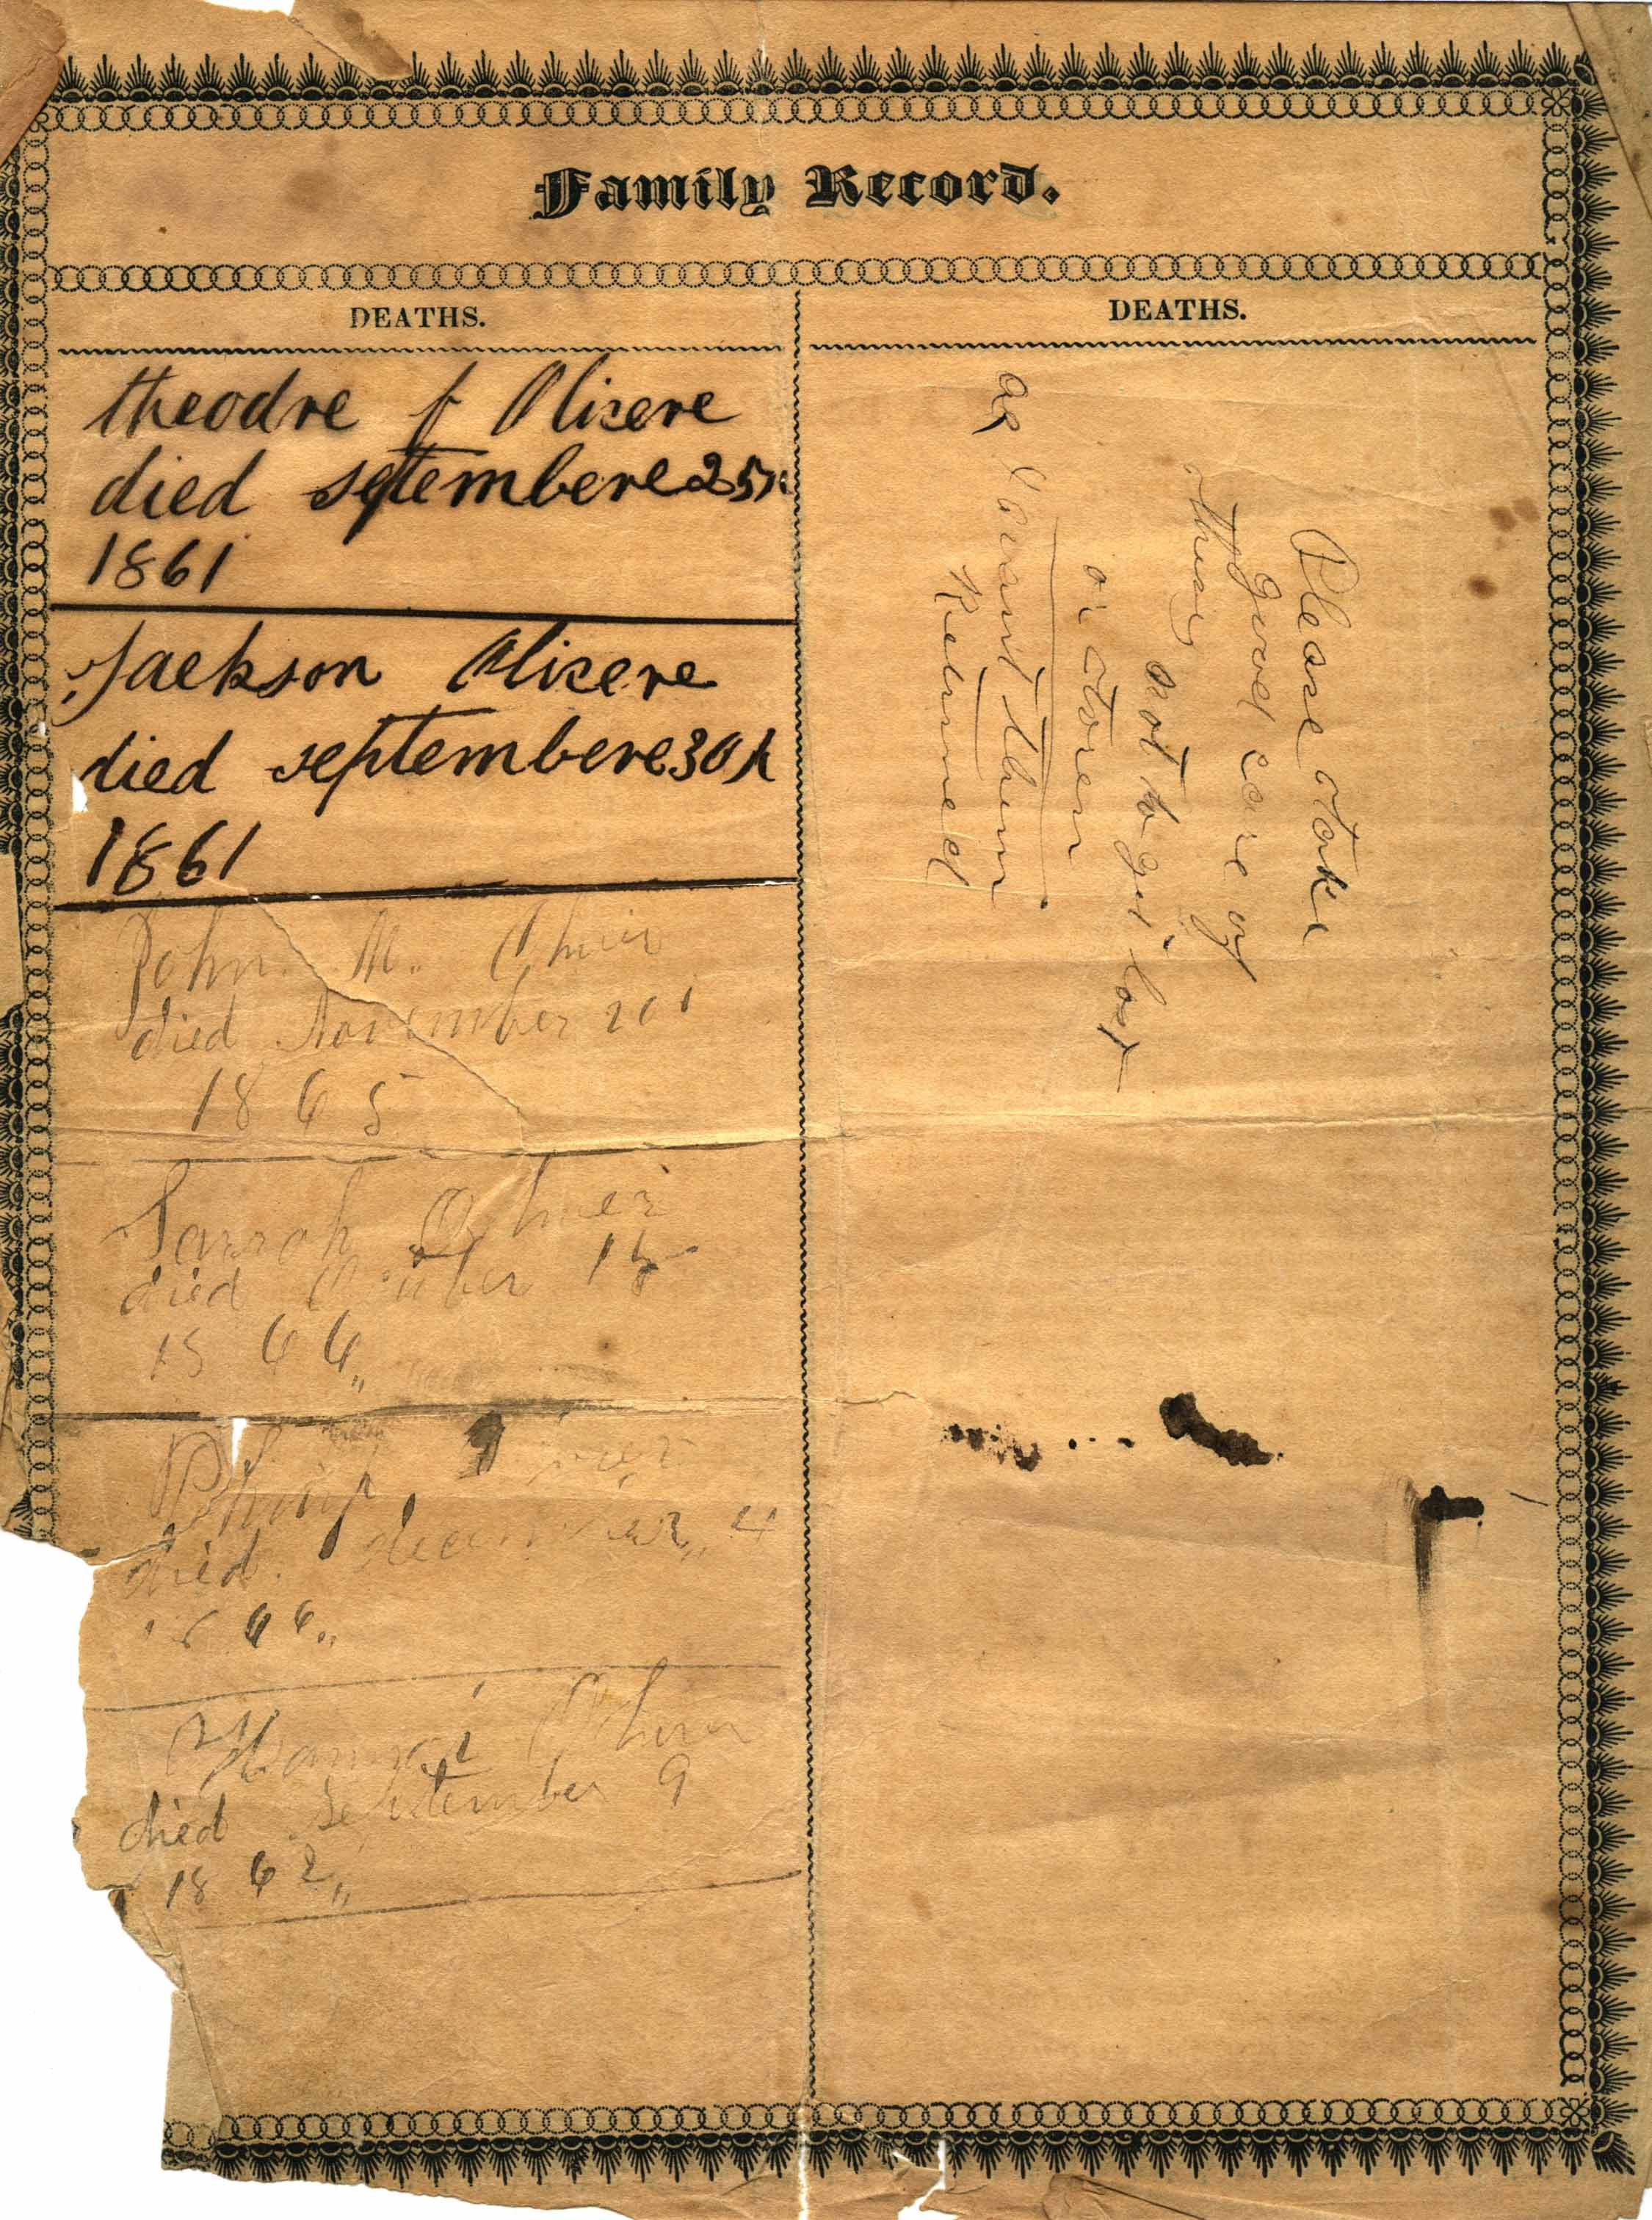 Family Record.
DEATHS.
theodre f Olivere
died septembere 25th
1861
Jackson Olivere
died septembere 30th
1861
John. M. Oliver
died November 20
1865
Sarrah Oliver
died October 15
1866,,
Philip
died. december,, 4
1866,,
Oliver
died September 9
1862,,
DEATHS.
Please take
good care of
them
not to get lost
or toren
as I want them
Returned